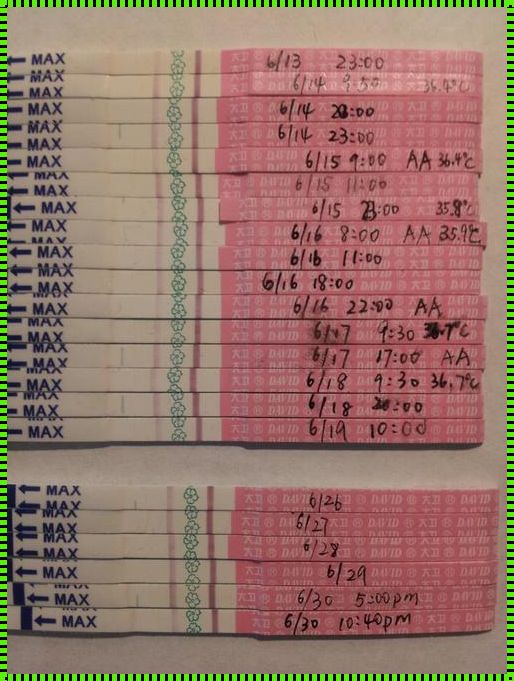 MAX 6/13 23:00
MAX 6/14 9:50 36.4°C
MAX
MAX 6/14 23:00
MAX 6/14 23:00
MAX 6/15 9:00 AA 36.4°C
MAX 6/15 11:00
MAX 6/15 23:00 35.8°C
MAX 6/16 8:00 AA 35.9°C
MAX 6/16 11:00
MAX 6/16 18:00
MAX 6/16 22:00 AA
MAX 6/17 9:30 36.7°C
MAX 6/17 17:00 AA
MAX 6/18 9:30 36.7°C
MAX 6/18 20:00
MAX 6/19 10:00
MAX 6/26
MAX 6/27
MAX
MAX 6/28
MAX 6/29
MAX 6/30 5:00pm
MAX 6/30 10:40pm
大卫 ® DAVID